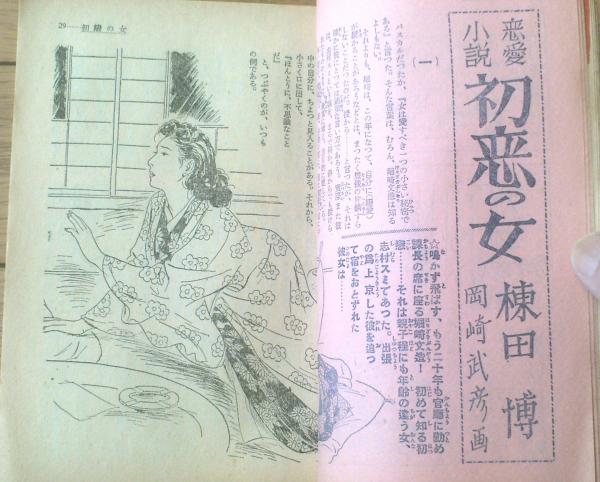 恋愛
小説
初恋の女
棟田博
岡崎武彦画
☆鳴かず飛ばず、もう二十年も官廳に勤め
課長の席に座る堀崎文造! 初めて知る初
戀……それは親子程にも年齢の違う女、
志村スミであつた。出張
の爲上京した彼を追つ
て宿をおとずれた
彼女は……
(一)
パスカルだつたか、『女は愛すべき一つの小さい秘密で
ある』と言つた。そんな言葉は、むろん、堀崎文造は知る
よしもない。
29……初戀の女
中の自分に、ちよつと見入ることがある。それから、
小さく口に出して、
『ほんとうに、不思議なこと
だ』
と、つぶやくのが、いつも
の例である。